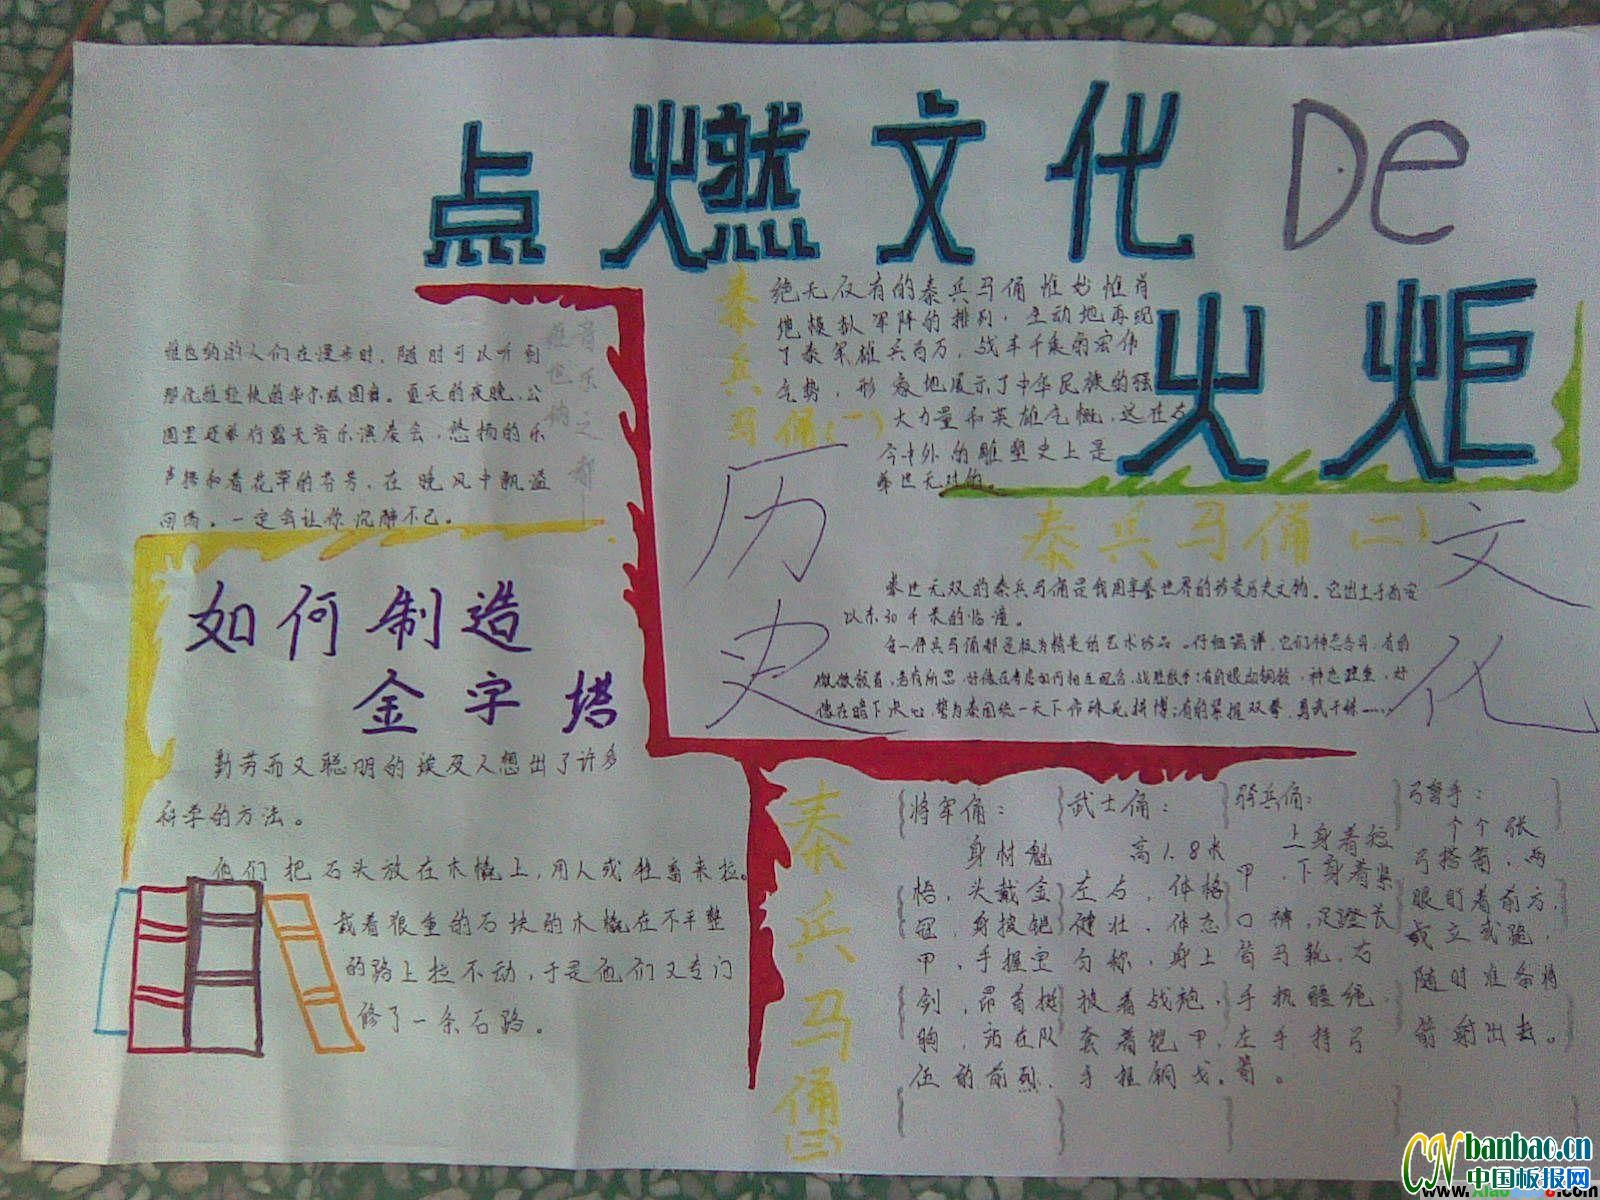 点燃文化De
火炬
秦兵马俑(一)
绝无仅有的秦兵马俑惟妙惟肖
地模拟军阵的排列，生动地再现
了秦军雄兵百万，战车千乘的宏伟
气势，形象地展示了中华民族的强
大力量和英雄气概，这在古
今中外的雕塑史上是
举世无双的。
音乐之都—
维也纳
维也纳的人们在漫步时，随时可以听到
那优雅轻快的华尔兹圆舞。夏天的夜晚，公
园里还举行露天音乐演奏会，悠扬的乐
声掺和着花草的芬芳，在晚风中飘溢
回荡。一定会让你沉醉不已。
如何制造
金字塔
勤劳而又聪明的埃及人想出了许多
科学的方法。
他们把石头放在木橇上，用人或牲畜来拉。
载着很重的石块的木橇在不平整
的路上拉不动，于是他们又专门
修了一条石路。
历史
文化
秦兵马俑(二)
举世无双的秦兵马俑是我国享誉世界的珍贵历史文物。它出土于西安
以东30千米的临潼。
每一件兵马俑都是极为精美的艺术珍品。仔细端详，它们神态各异：有的
微微颔首，若有所思，好像在考虑如何相互配合，战胜敌手；有的眼如铜铃，神态庄重，好
像在暗下决心，誓为秦国统一天下作殊死拼搏；有的紧握双拳，勇武干练……
秦兵马俑(三)
将军俑：
身材魁
梧，头戴金
冠，身披铠
甲，手握宝
剑，昂首挺
胸，站在队
伍的前列。
武士俑：
高1.8米
左右，体格
健壮，体态
匀称，身上
披着战袍，
套着铠甲，
手握铜戈。
骑兵俑：
上身着短
甲，下身着紧
口裤，足蹬长
筒马靴，右
手执缰绳，
左手持弓
箭。
弓弩手：
个个张
弓搭箭，两
眼盯着前方，
或立或跪，
随时准备将
箭射出去。
CN banbao.cn
中国板报网